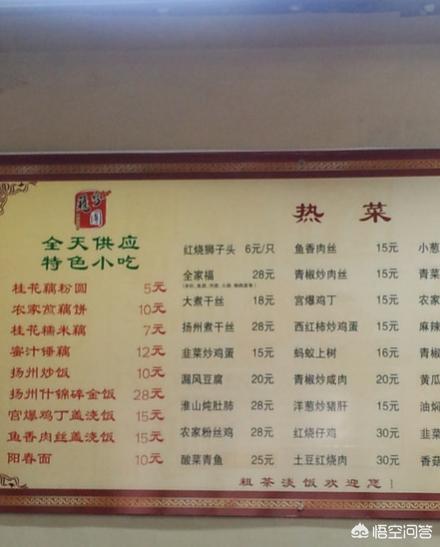 全天供应
特色小吃
桂花藕粉圆 5元
农家煎藕饼 10元
桂花糯米藕 7元
蜜汁锤藕 12元
扬州炒饭 10元
扬州什锦碎金饭 28元
宫爆鸡丁盖浇饭 15元
鱼香肉丝盖浇饭 15元
阳春面 10元
热菜
红烧狮子头 6元/只
全家福 28元
大煮干丝 18元
扬州煮干丝 28元
韭菜炒鸡蛋 15元
漏风豆腐 20元
淮山炖肚肺 28元
农家粉丝鸡 28元
酸菜青鱼 25元
鱼香肉丝 15元
青椒炒肉丝 15元
宫爆鸡丁 15元
西红柿炒鸡蛋 15元
蚂蚁上树 16元
青椒炒咸肉 20元
洋葱炒猪肝 15元
红烧仔鸡 30元
土豆红烧肉 30元
小葱
麻辣
黄瓜
油焖
韭菜
香菇
粗茶淡饭欢迎您！
悟空问答